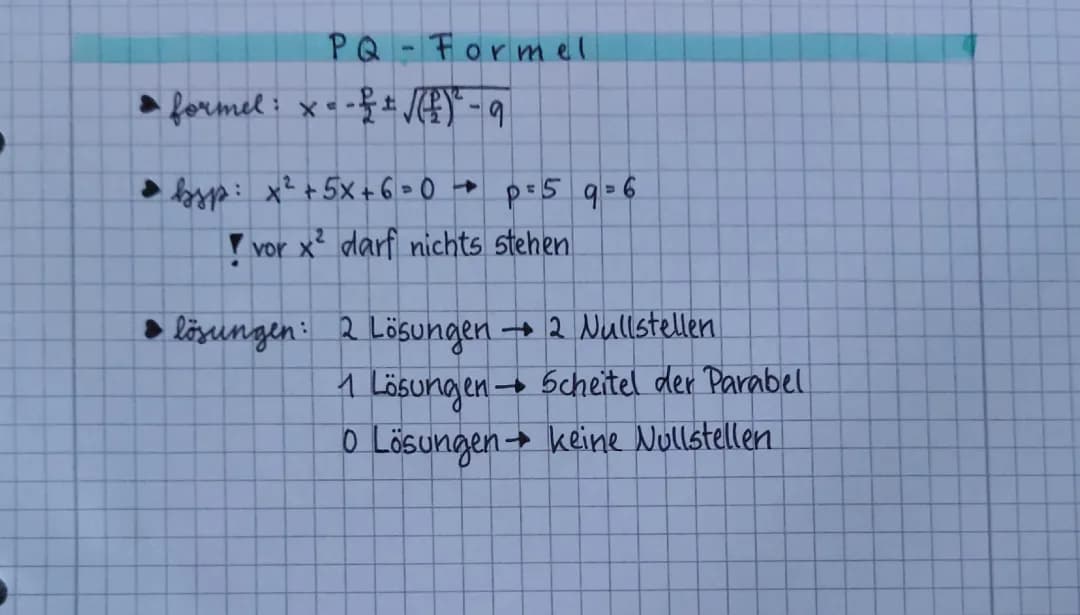 PQ - Formel
▸ formel: x = -p/2 ± √((p/2)² - q)
▸ bsp: x² + 5x + 6 = 0 → p = 5 q = 6
! vor x² darf nichts stehen
▸ lösungen: 2 Lösungen → 2 Nullstellen
1 Lösungen → Scheitel der Parabel
0 Lösungen → keine Nullstellen